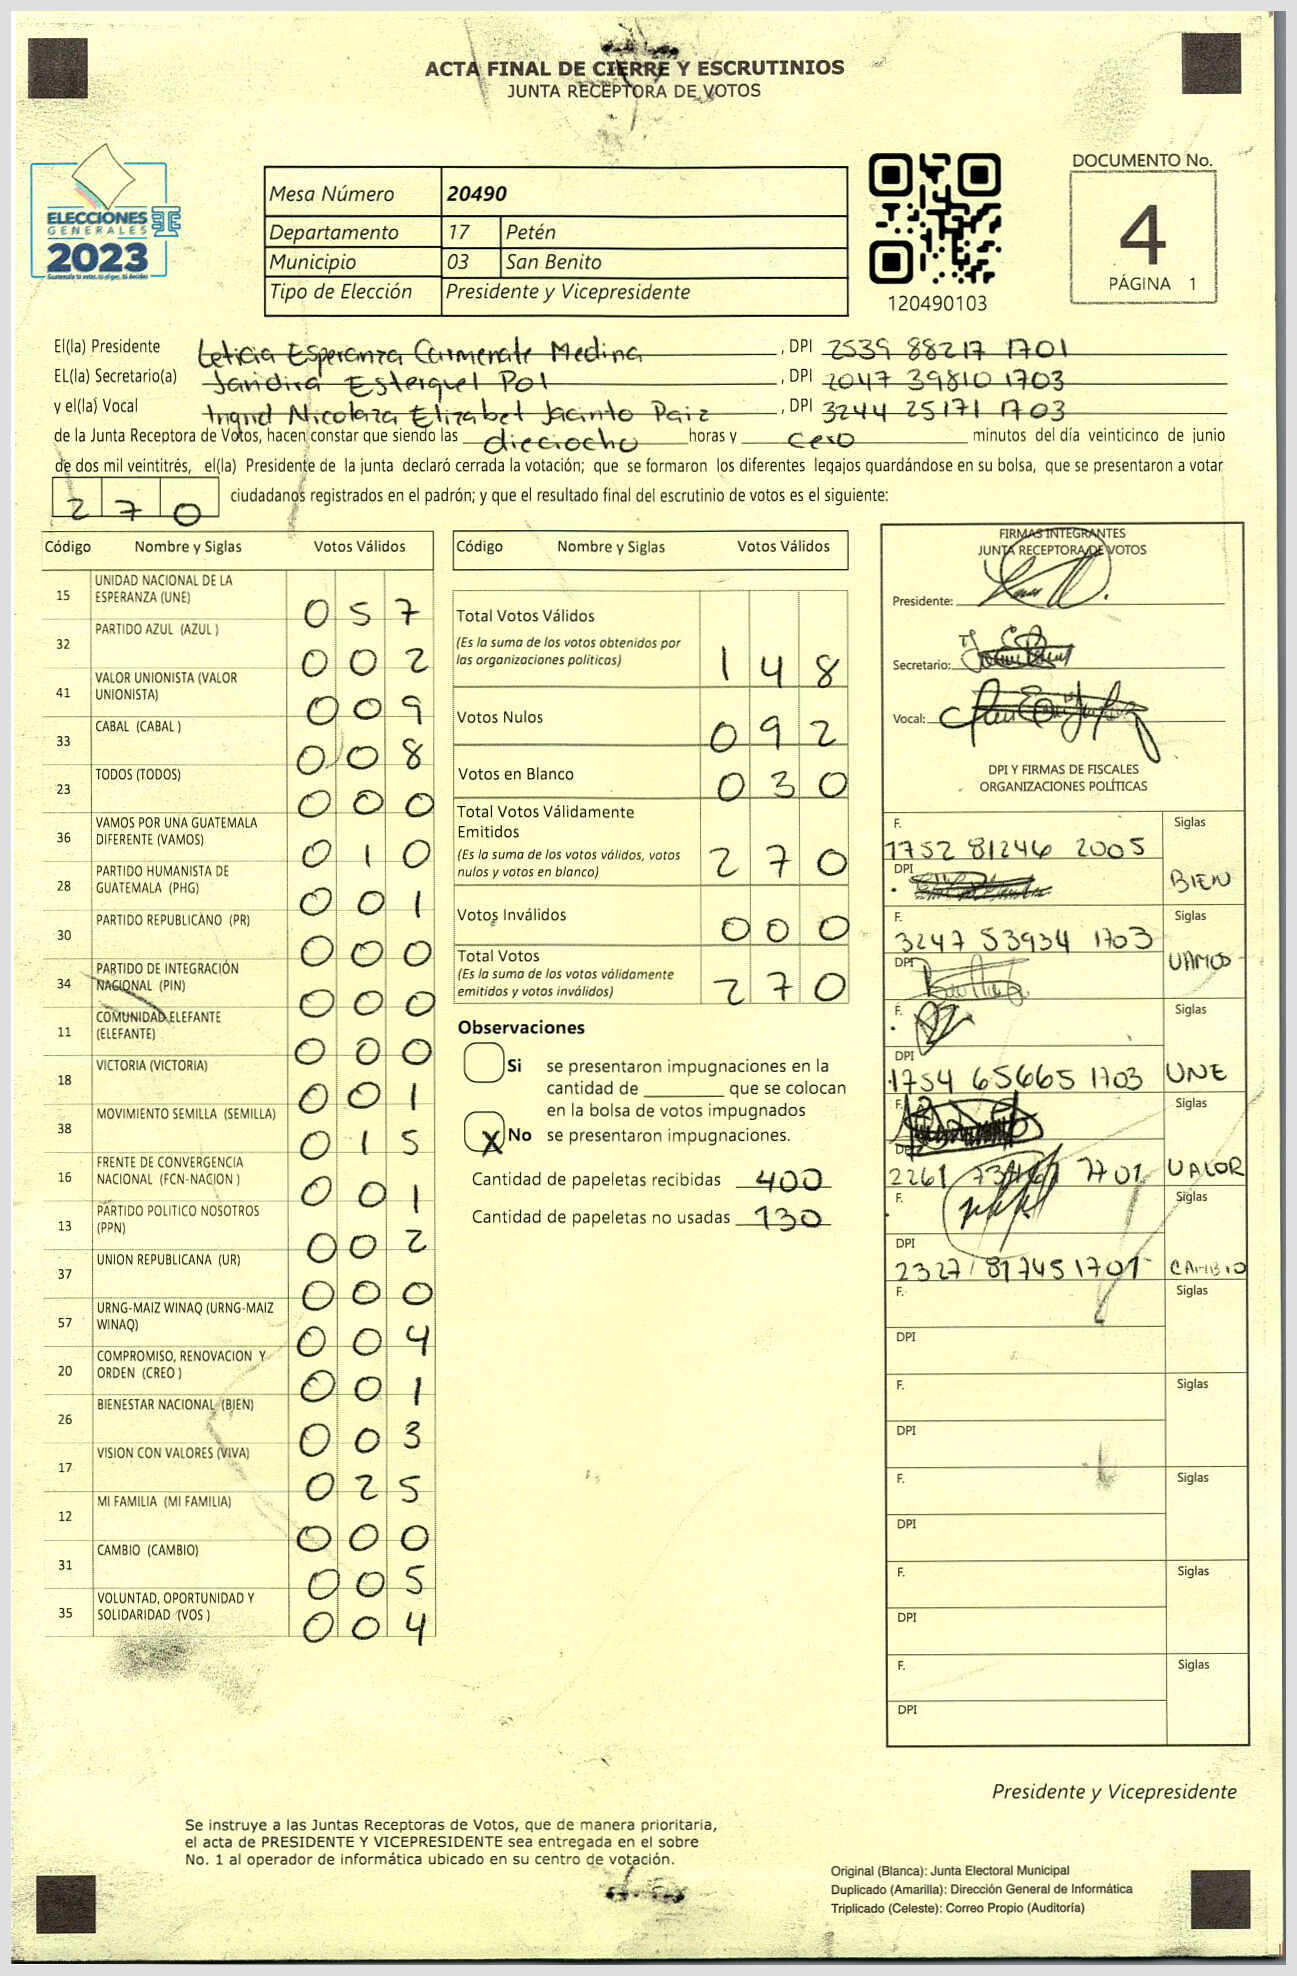 ACTA FINAL DE CIERRE Y ESCRUTINIOS
JUNTA RECEPTORA DE VOTOS
ELECCIONES
GENERALES
2023
Mesa Número 20490
Departamento 17 Petén
Municipio 03 San Benito
Tipo de Elección Presidente y Vicepresidente
120490103
DOCUMENTO No.
4
PÁGINA 1
El(la) Presidente Leticia Esperanza Carmenate Medina , DPI 2539 88217 1701
EL(la) Secretario(a) Pol , DPI 2047 39810 1703
y el(la) Vocal Ingrid Nicolaza Elizabet Jacinto Paiz , DPI 3244 25171 1703
de la Junta Receptora de Votos, hacen constar que siendo las dieciocho horas y cero minutos del día veinticinco de junio
de dos mil veintitrés, el(la) Presidente de la junta declaró cerrada la votación; que se formaron los diferentes legajos guardándose en su bolsa, que se presentaron a votar
270 ciudadanos registrados en el padrón; y que el resultado final del escrutinio de votos es el siguiente:
Código Nombre y Siglas Votos Válidos
15 UNIDAD NACIONAL DE LA
ESPERANZA (UNE) 057
32 PARTIDO AZUL (AZUL ) 002
41 VALOR UNIONISTA (VALOR
UNIONISTA) 009
33 CABAL (CABAL ) 008
23 TODOS (TODOS) 000
36 VAMOS POR UNA GUATEMALA
DIFERENTE (VAMOS) 010
28 PARTIDO HUMANISTA DE
GUATEMALA (PHG) 001
30 PARTIDO REPUBLICANO (PR) 000
34 PARTIDO DE INTEGRACIÓN
NACIONAL (PIN) 000
11 COMUNIDAD ELEFANTE
(ELEFANTE) 000
18 VICTORIA (VICTORIA) 001
38 MOVIMIENTO SEMILLA (SEMILLA) 015
16 FRENTE DE CONVERGENCIA
NACIONAL (FCN-NACION ) 001
13 PARTIDO POLITICO NOSOTROS
(PPN) 002
37 UNION REPUBLICANA (UR) 000
57 URNG-MAIZ WINAQ (URNG-MAIZ
WINAQ) 004
20 COMPROMISO, RENOVACION Y
ORDEN (CREO ) 001
26 BIENESTAR NACIONAL (BIEN) 003
17 VISION CON VALORES (VIVA) 025
12 MI FAMILIA (MI FAMILIA) 000
31 CAMBIO (CAMBIO) 005
35 VOLUNTAD, OPORTUNIDAD Y
SOLIDARIDAD (VOS ) 004
Código Nombre y Siglas Votos Válidos
Total Votos Válidos
(Es la suma de los votos obtenidos por
las organizaciones políticas) 148
Votos Nulos 092
Votos en Blanco 030
Total Votos Válidamente
Emitidos
(Es la suma de los votos válidos, votos
nulos y votos en blanco) 270
Votos Inválidos 000
Total Votos
(Es la suma de los votos válidamente
emitidos y votos inválidos) 270
Observaciones
Si se presentaron impugnaciones en la
cantidad de ________ que se colocan
en la bolsa de votos impugnados
X No se presentaron impugnaciones.
Cantidad de papeletas recibidas 400
Cantidad de papeletas no usadas 130
FIRMAS INTEGRANTES
JUNTA RECEPTORA DE VOTOS
Presidente:
Secretario:
Vocal:
DPI Y FIRMAS DE FISCALES
ORGANIZACIONES POLÍTICAS
F. Siglas
1752 81246 2005
DPI BIEN
F. Siglas
3247 53934 1703
DPI VAMOS
F. Siglas
DPI
1754 65665 1703 UNE
F. Siglas
DPI
2261 VALOR
F. Siglas
DPI
2327 81745 1701 CAMBIO
F. Siglas
DPI
F. Siglas
DPI
F. Siglas
DPI
F. Siglas
DPI
F. Siglas
DPI
Presidente y Vicepresidente
Se instruye a las Juntas Receptoras de Votos, que de manera prioritaria,
el acta de PRESIDENTE Y VICEPRESIDENTE sea entregada en el sobre
No. 1 al operador de informática ubicado en su centro de votación.
Original (Blanca): Junta Electoral Municipal
Duplicado (Amarilla): Dirección General de Informática
Triplicado (Celeste): Correo Propio (Auditoría)